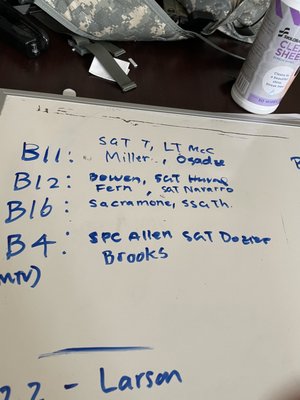 CLEAN
SHEE
B11: SGT T, LT McC
Miller , Osadze
B12: Bowen, SGT
Fern , SGT Navarro
B16: Sacramone, SSG Th.
B4: SPC Allen SGT Dozier
Brooks
MTV)
22 - Larson